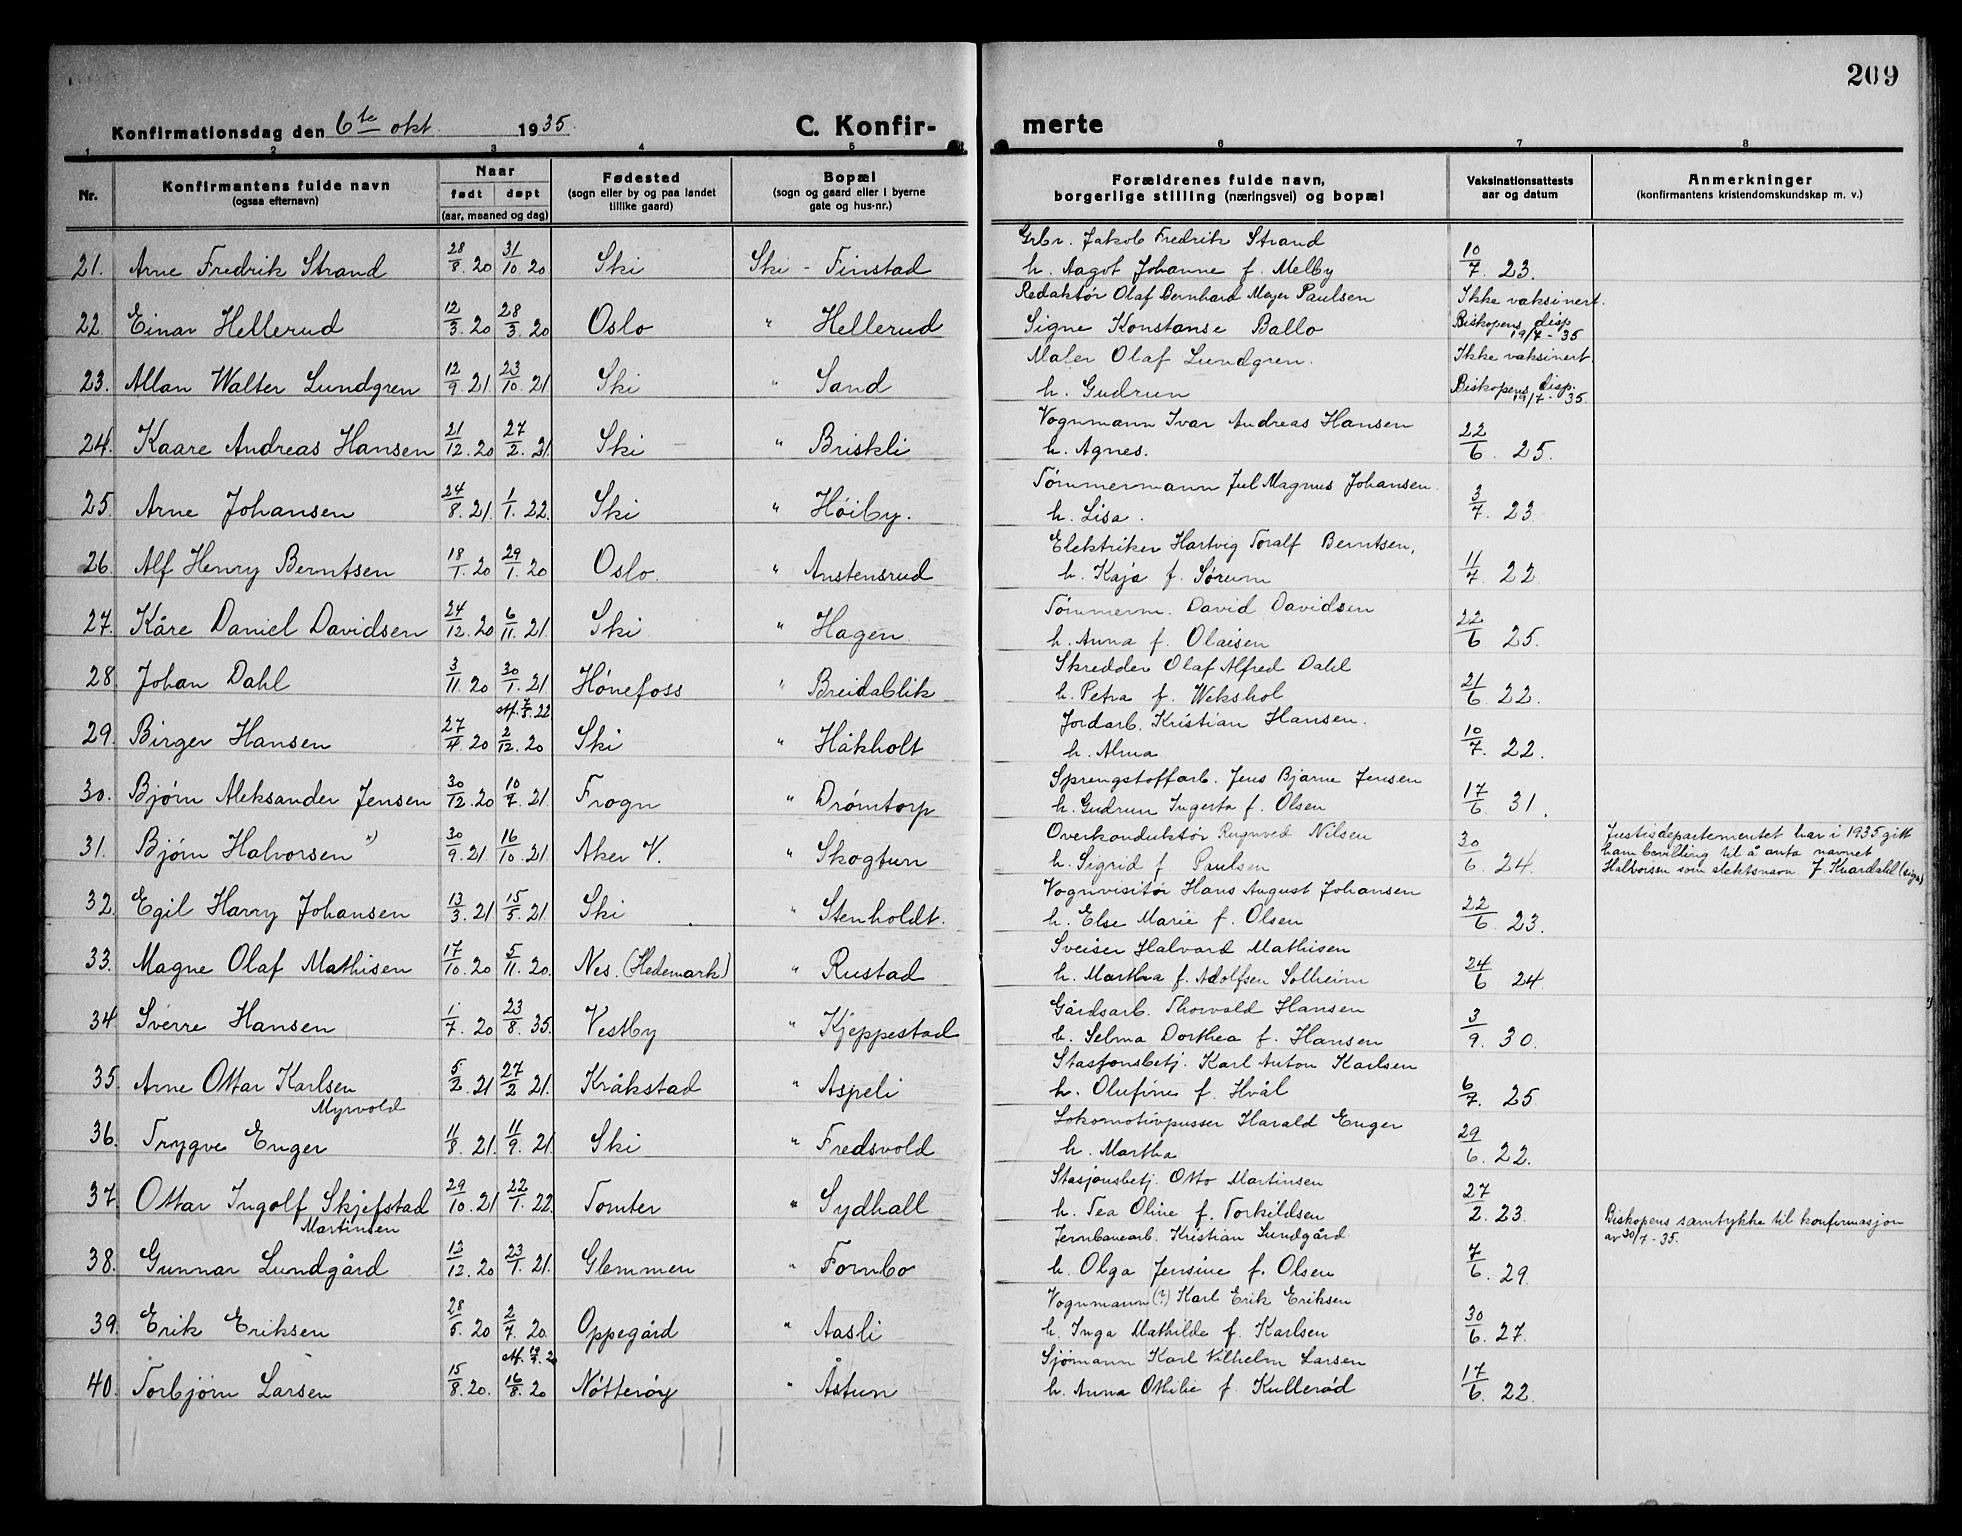 209
Konfirmationsdag den 6te okt. 1935.
C. Konfir-
merte
1 2 3 4 5 6 7 8
Nr.
Konfirmantens fulde navn
(ogsaa efternavn)
Naar
født døpt
(aar, maaned og dag)
Fødested
(sogn eller by og paa landet
tillike gaard)
Bopæl
(sogn og gaard eller i byerne
gate og hus-nr.)
Forældrenes fulde navn,
borgerlige stilling (næringsvei) og bopæl
Vaksinationsattests
aar og datum
Anmerkninger
(konfirmantens kristendomskundskap m. v.)
21. Arne Fredrik Strand 28/8. 20 31/10. 20 Ski Ski - Finstad Grbr. Jakob Fredrik Strand
h. Aagot Johanne f. Melby 10/7. 23.
22. Einar Hellerud 12/3. 20 28/3. 20 Oslo " Hellerud Redaktør Olaf Bernhard Meyer Paulsen Ikke vaksinert.
Signe Konstanse Ballo Biskopens disp 19/7 - 35
23. Allan Walter Lundgren 12/9. 21 23/10. 21 Ski " Sand Maler Olaf Lundgren. Ikke vaksinert.
h. Gudrun Biskopens disp. 19/7 - 35.
24. Kaare Andreas Hansen 21/12. 20 27/2. 21. Ski " Briskli Vognmann Ivar Andreas Hansen
h. Agnes. 22/6. 25.
25. Arne Johansen 24/8. 21. 1/1. 22. Ski " Høiby. Tømmermann Jul Magnus Johansen.
h. Lisa. 3/7. 23
26. Alf Henry Berntsen 18/1. 20 29/1. 20 Oslo. " Anstensrud Elektriker Hartvig Toralf Berntsen,
h. Kaja f. Sørum 11/7. 22
27. Kåre Daniel Davidsen 24/12. 20 6/11. 21. Ski " Hagen. Tømmerm. David Davidsen
h. Anna f. Olaisen 22/6 25.
28. Johan Dahl 3/11. 20 30/1. 21 Hønefoss " Breidablik Skredder Olaf Alfred Dahl
h. Petra f. Wekshol 21/6 22.
29. Birger Hansen 27/4. 20 2/12. 20 Ski " Håkholt Jordarb. Kristian Hansen.
h. Alma 10/7. 22.
30. Bjørn Aleksander Jensen 30/12. 20 10/7. 21. Frogn " Drømtorp Sprengstoffarb. Jens Bjarne Jensen
h. Gudrun Ingerta f. Olsen 17/6 31.
31. Bjørn Halvorsen x) 30/9. 21 16/10. 21. Aker V. " Skogtun Overkonduktør Rugnved Nilsen
h. Sigrid f. Paulsen 30/6 24. Justisdepartementet har i 1935 gitt
ham bevilling til å anta navnet
Halvorsen som slektsnavn
32. Egil Harry Johansen 13/3. 21 15/5. 21 Ski " Stenholdt. Vognvisitør Hans August Johansen
h. Else Marie f. Olsen 22/6. 23.
33. Magne Olaf Mathisen 17/10. 20 5/11. 20. Nes. (Hedemark) " Rustad Sveiser Halvard Mathisen
h. Martha f. Adolfsen Solheim 24/6 24.
34 Sverre Hansen 1/7. 20 23/8. 35. Vestby " Kjeppestad Gårdsarb. Thorvald Hansen
h. Selma Dorthea f. Hansen 3/9. 30.
35. Arne Ottar Karlsen 5/2. 21 27/2 21. Kråkstad " Aspeli Stasjonsbetj. Karl Anton Karlsen
Myrvold h. Olufine f. Hvål 6/7. 25
36. Trygve Enger 11/8. 21. 11/9. 21. Ski " Fredsvold Lokomotivpusser Harald Enger
h. Martha 29/6. 22.
37. Ottar Ingolf Skjefstad 29/10. 21 22/1. 22. Tomter " Sydhall Stasjonsbetj. Otto Martinsen
Martinsen h. Tea Oline f. Torkildsen 27/2. 23. Biskopens samtykke til konfirmasjon
av 30/7 - 35.
38. Gunnar Lundgård 13/12. 20 23/1. 21. Glemmen " Fornbo Jernbanearb. Kristian Lundgård
h. Olga Jensine f. Olsen 7/6. 29.
39. Erik Eriksen 28/5. 20 2/7. 20. Oppegård " Aasli Vognmann (?) Karl Erik Eriksen
h. Inga Mathilde f. Karlsen 30/6. 27.
40. Torbjørn Larsen 15/8. 20. 16/8. 20 Nøtterøy " Åstun Sjømann Karl Vilhelm Larsen
h. Anna Othilie f. Kullerød 17/6. 22.